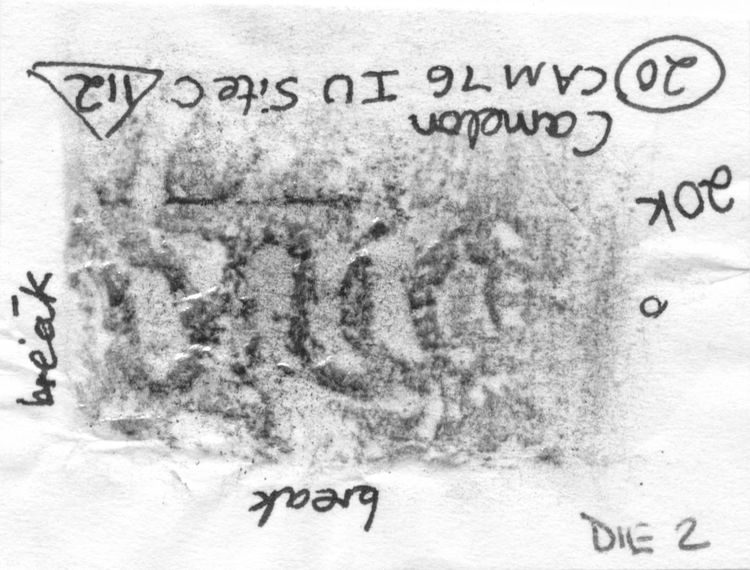 20 CAM 76 IU Site C 112
Camelon
20K
break
break
DIE 2